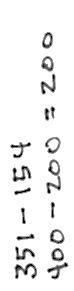 351 - 154
400 - 200 = 200